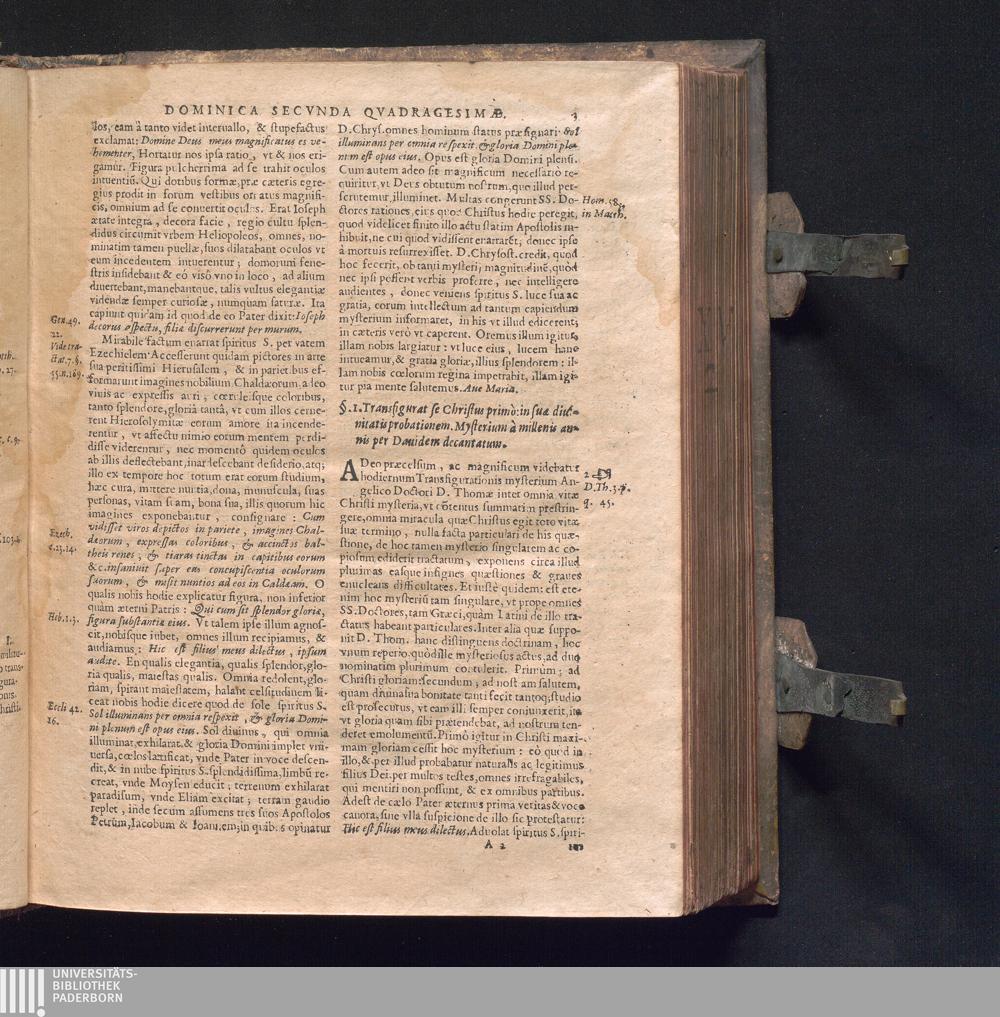 DOMINICA SECVNDA QVADRAGESIMÆ. 3
los, eam à tanto videt interuallo, & stupefactus
exclamat: Domine Deus meus magnificatus es ve-
hementer, Hortatur nos ipsa ratio, vt & nos eri-
gamur. Figura pulcherrima ad se trahit oculos
intuentiū. Qui dotibus formæ, præ cæteris egre-
gius prodit in forum vestibus ornatus magnifi-
cis, omnium ad se conuertit oculos. Erat Ioseph
ætate integra, decora facie, regio cultu splen-
didus circumit vrbem Heliopoleos, omnes, no-
minatim tamen puellæ, suos dilatabant oculos vt
eum incedentem intuerentur; domorum fene-
stris insidebant & eó visō vno in loco, ad alium
diuertebant, manebantque, talis vultus elegantiæ
videndæ semper curiosæ, numquam saturæ. Ita
capiunt quidam id quod de eo Pater dixit: Ioseph
decorus aspectu, filiæ discurrerunt per murum.
Mirabile factum enarrat spiritus S. per vatem
Ezechielem. Accesserunt quidam pictores in arte
sua peritissimi Hierusalem, & in parietibus ef-
formarunt imagines nobilium Chaldæorum, adeo
viuis ac expressis auri, cœruleisque coloribus,
tanto splendore, gloriâ tantâ, vt cum illos cerne-
rent Hierosolymitæ eorum amore ita incende-
rentur, vt affectu nimio eorum mentem perdi-
disse viderentur, nec momentō quidem oculos
ab illis deflectebant, inardescebant desiderio, atq;
illo ex tempore hoc totum erat eorum studium,
hæc cura, mittere nuntia, dona, munuscula, suas
personas, vitam suam, bona sua, illis quorum hic
imagines exponebantur, consignare: Cum
vidisset viros depictos in pariete, imagines Chal-
dæorum, expressas coloribus, & accinctos bal-
theis renes; & tiaras tinctas in capitibus eorum
&c. insaniuit super eas concupiscentia oculorum
suorum, & misit nuntios ad eos in Caldæam. O
qualis nobis hodie explicatur figura, non inferior
quàm æterni Patris: Qui cum sit splendor gloriæ,
figura substantiæ eius. Vt talem ipse illum agnos-
cit, nobisque iubet, omnes illum recipiamus, &
audiamus: Hic est filius meus dilectus, ipsum
audite. En qualis elegantia, qualis splendor, glo-
ria qualis, maiestas qualis. Omnia redolent, glo-
riam, spirant maiestatem, halant celsitudinem li-
ceat nobis hodie dicere quod de sole spiritus S.
Sol illuminans per omnia respexit, & gloria Domi-
ni plenum est opus eius. Sol diuinus, qui omnia
illuminat, exhilarat, & gloria Domini implet vni-
uersa, cœlos lætificat, vnde Pater in voce descen-
dit, & in nube spiritus S. splendidissima, limbū re-
creat, vnde Moysen educit; terrenum exhilarat
paradisum, vnde Eliam excitat; terram gaudio
replet, inde secum assumens tres suos Apostolos
Petrum, Iacobum & Ioannem, in quibus opinatur
Gen. 49.
22.
Vide tra-
ctat. 7. §.
55. n. 169.
Ezech.
c. 23. 14.
Heb. 1. 3.
Eccli 42.
16.
D. Chrys. omnes hominum status præsignari. Sol
illuminans per omnia respexit, & gloria Domini ple-
num est opus eius. Opus est gloria Domini plenū.
Cum autem adeo sit magnificum necessariò re-
quiritur, vt Deus obtutum nostrum, quo illud per-
scrutemur, illuminet. Multas congerunt SS. Do-
ctores rationes, eius quod Christus hodie peregit,
quod videlicet finito illo actu statim Apostolis in-
hibuit, ne cui quod vidissent enarrarēt; donec ipse
à mortuis resurrexisset. D. Chrysost. credit, quod
hoc fecerit, ob tanti mysterij magnitudinē, quòd
nec ipsi possent verbis proferre, nec intelligere
audientes, donec veniens spiritus S. luce sua ac
gratia, eorum intellectum ad tantum capiendum
mysterium informaret, in his vt illud edicerent;
in cæteris verò vt caperent. Oremus illum igitur,
illam nobis largiatur: vt luce eius, lucem hanc
intueamur, & gratia gloriæ, illius splendorem: il-
lam nobis cœlorum regina impetrabit, illam igi-
tur pia mente salutemus. Aue Maria.
§. 1. Transfigurat se Christus primò: in suæ diui-
nitatis probationem. Mysterium à millenis an-
nis per Dauidem decantatum.
ADeo præcelsum, ac magnificum videbatur
hodiernum Transfigurationis mysterium An-
gelico Doctori D. Thomæ inter omnia vitæ
Christi mysteria, vt cōtentus summatim præstrin-
gere, omnia miracula quæ Christus egit toto vitæ
suæ termino, nulla facta particulari de his quæ-
stione, de hoc tamen mysterio singularem ac co-
piosum ediderit tractatum, exponens circa illud
plurimas easque insignes quæstiones & graues
enucleans difficultates. Et iustè quidem: est ete-
nim hoc mysteriū tam singulare, vt prope omnes
SS. Doctores, tam Græci, quàm Latini de illo tra-
ctatus habeant particulares. Inter alia quæ suppo-
nit D. Thom. hanc distinguens doctrinam, hoc
vnum reperio, quòd ille mysteriosus actus, ad duo
nominatim plurimum contulerit. Primum; ad
Christi gloriam: secundum; ad nostram salutem,
quam diuina sua bonitate tanti fecit tantoq; studio
est prosecutus, vt eam illi semper coniunxerit, ita
vt gloria quam sibi prætendebat, ad nostrum ten-
deret emolumentū. Primò igitur in Christi maxi-
mam gloriam cessit hoc mysterium: eò quod in
illo, & per illud probabatur naturalis ac legitimus
filius Dei, per multos testes, omnes irrefragabiles,
qui mentiri non possunt, & ex omnibus partibus.
Adest de cælo Pater æternus prima veritas & voce
canora, sine vlla suspicione de illo sic protestatur:
Hic est filius meus dilectus. Aduolat spiritus S. spiri-
A 2
Hom. 58.
in Matth.
2
D. Th. 3. p.
q. 45.
UNIVERSITÄTS-
BIBLIOTHEK
PADERBORN